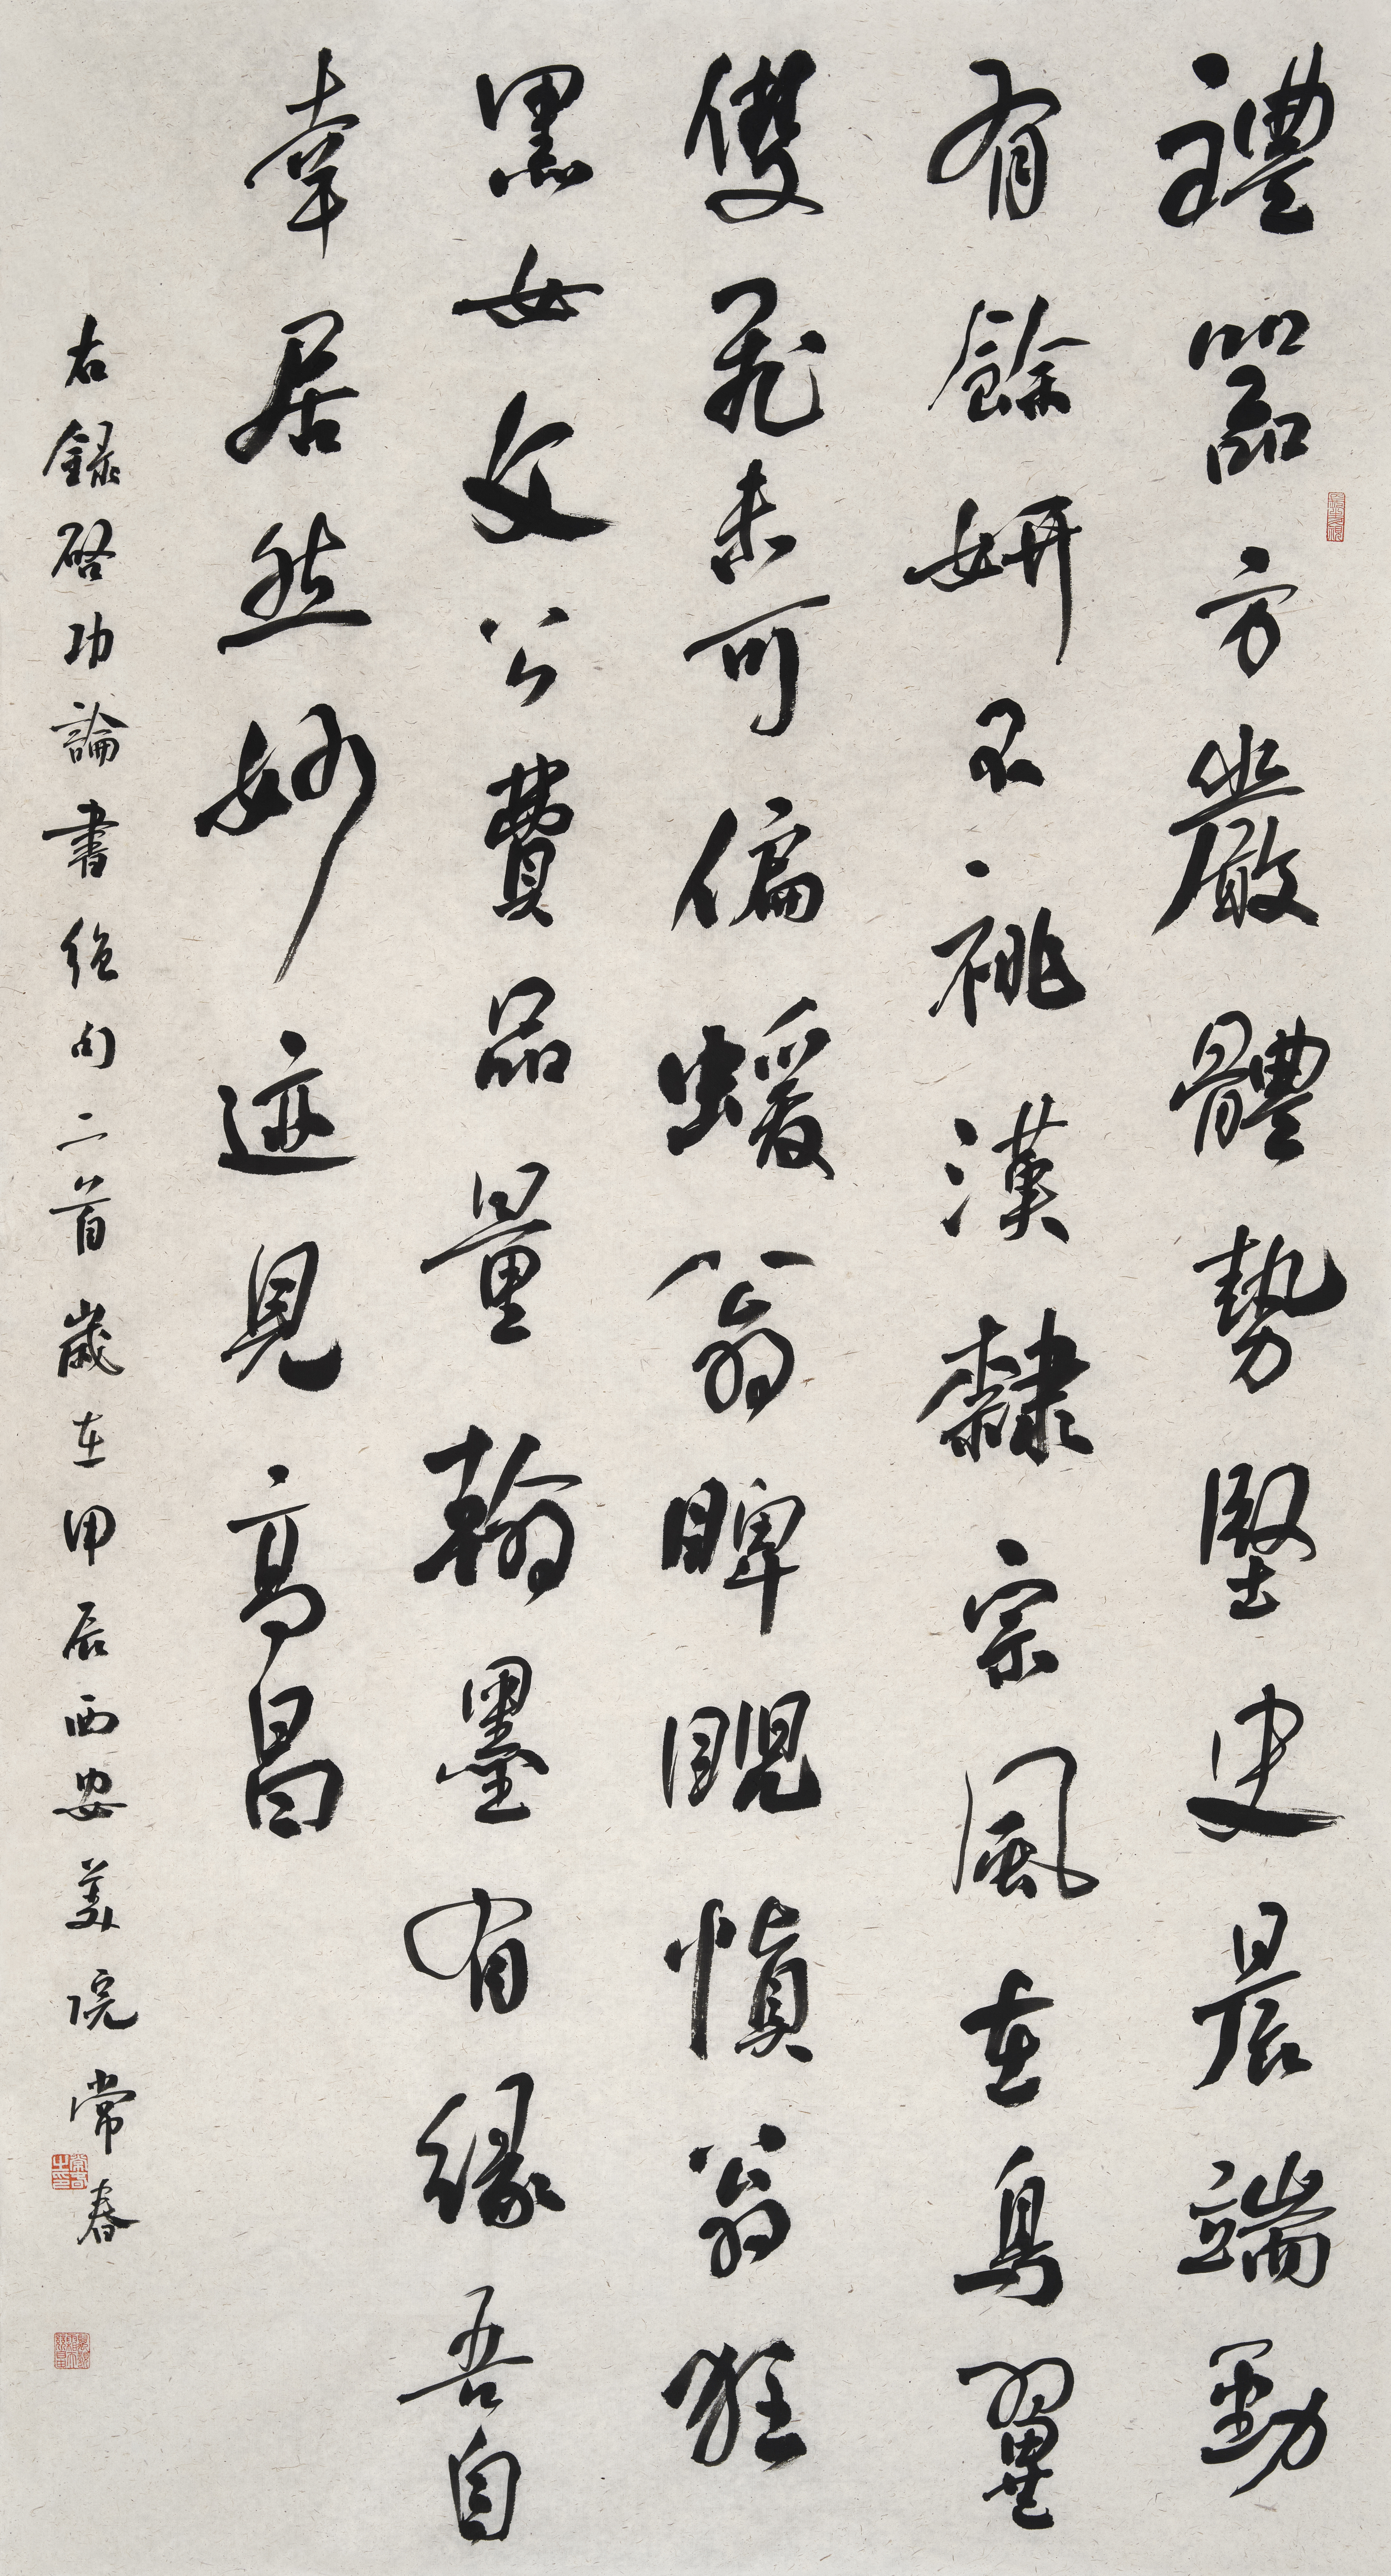 禮器方嚴體勢堅史晨端勁
有餘妍不祧漢隸宗風在鳥翼
雙飛未可偏蝯翁睥睨慎翁狂
黑女文公費品量翰墨有緣吾自
幸居然妙迹見高昌
右錄啓功論書絕句二首歲在甲辰西安美院常春